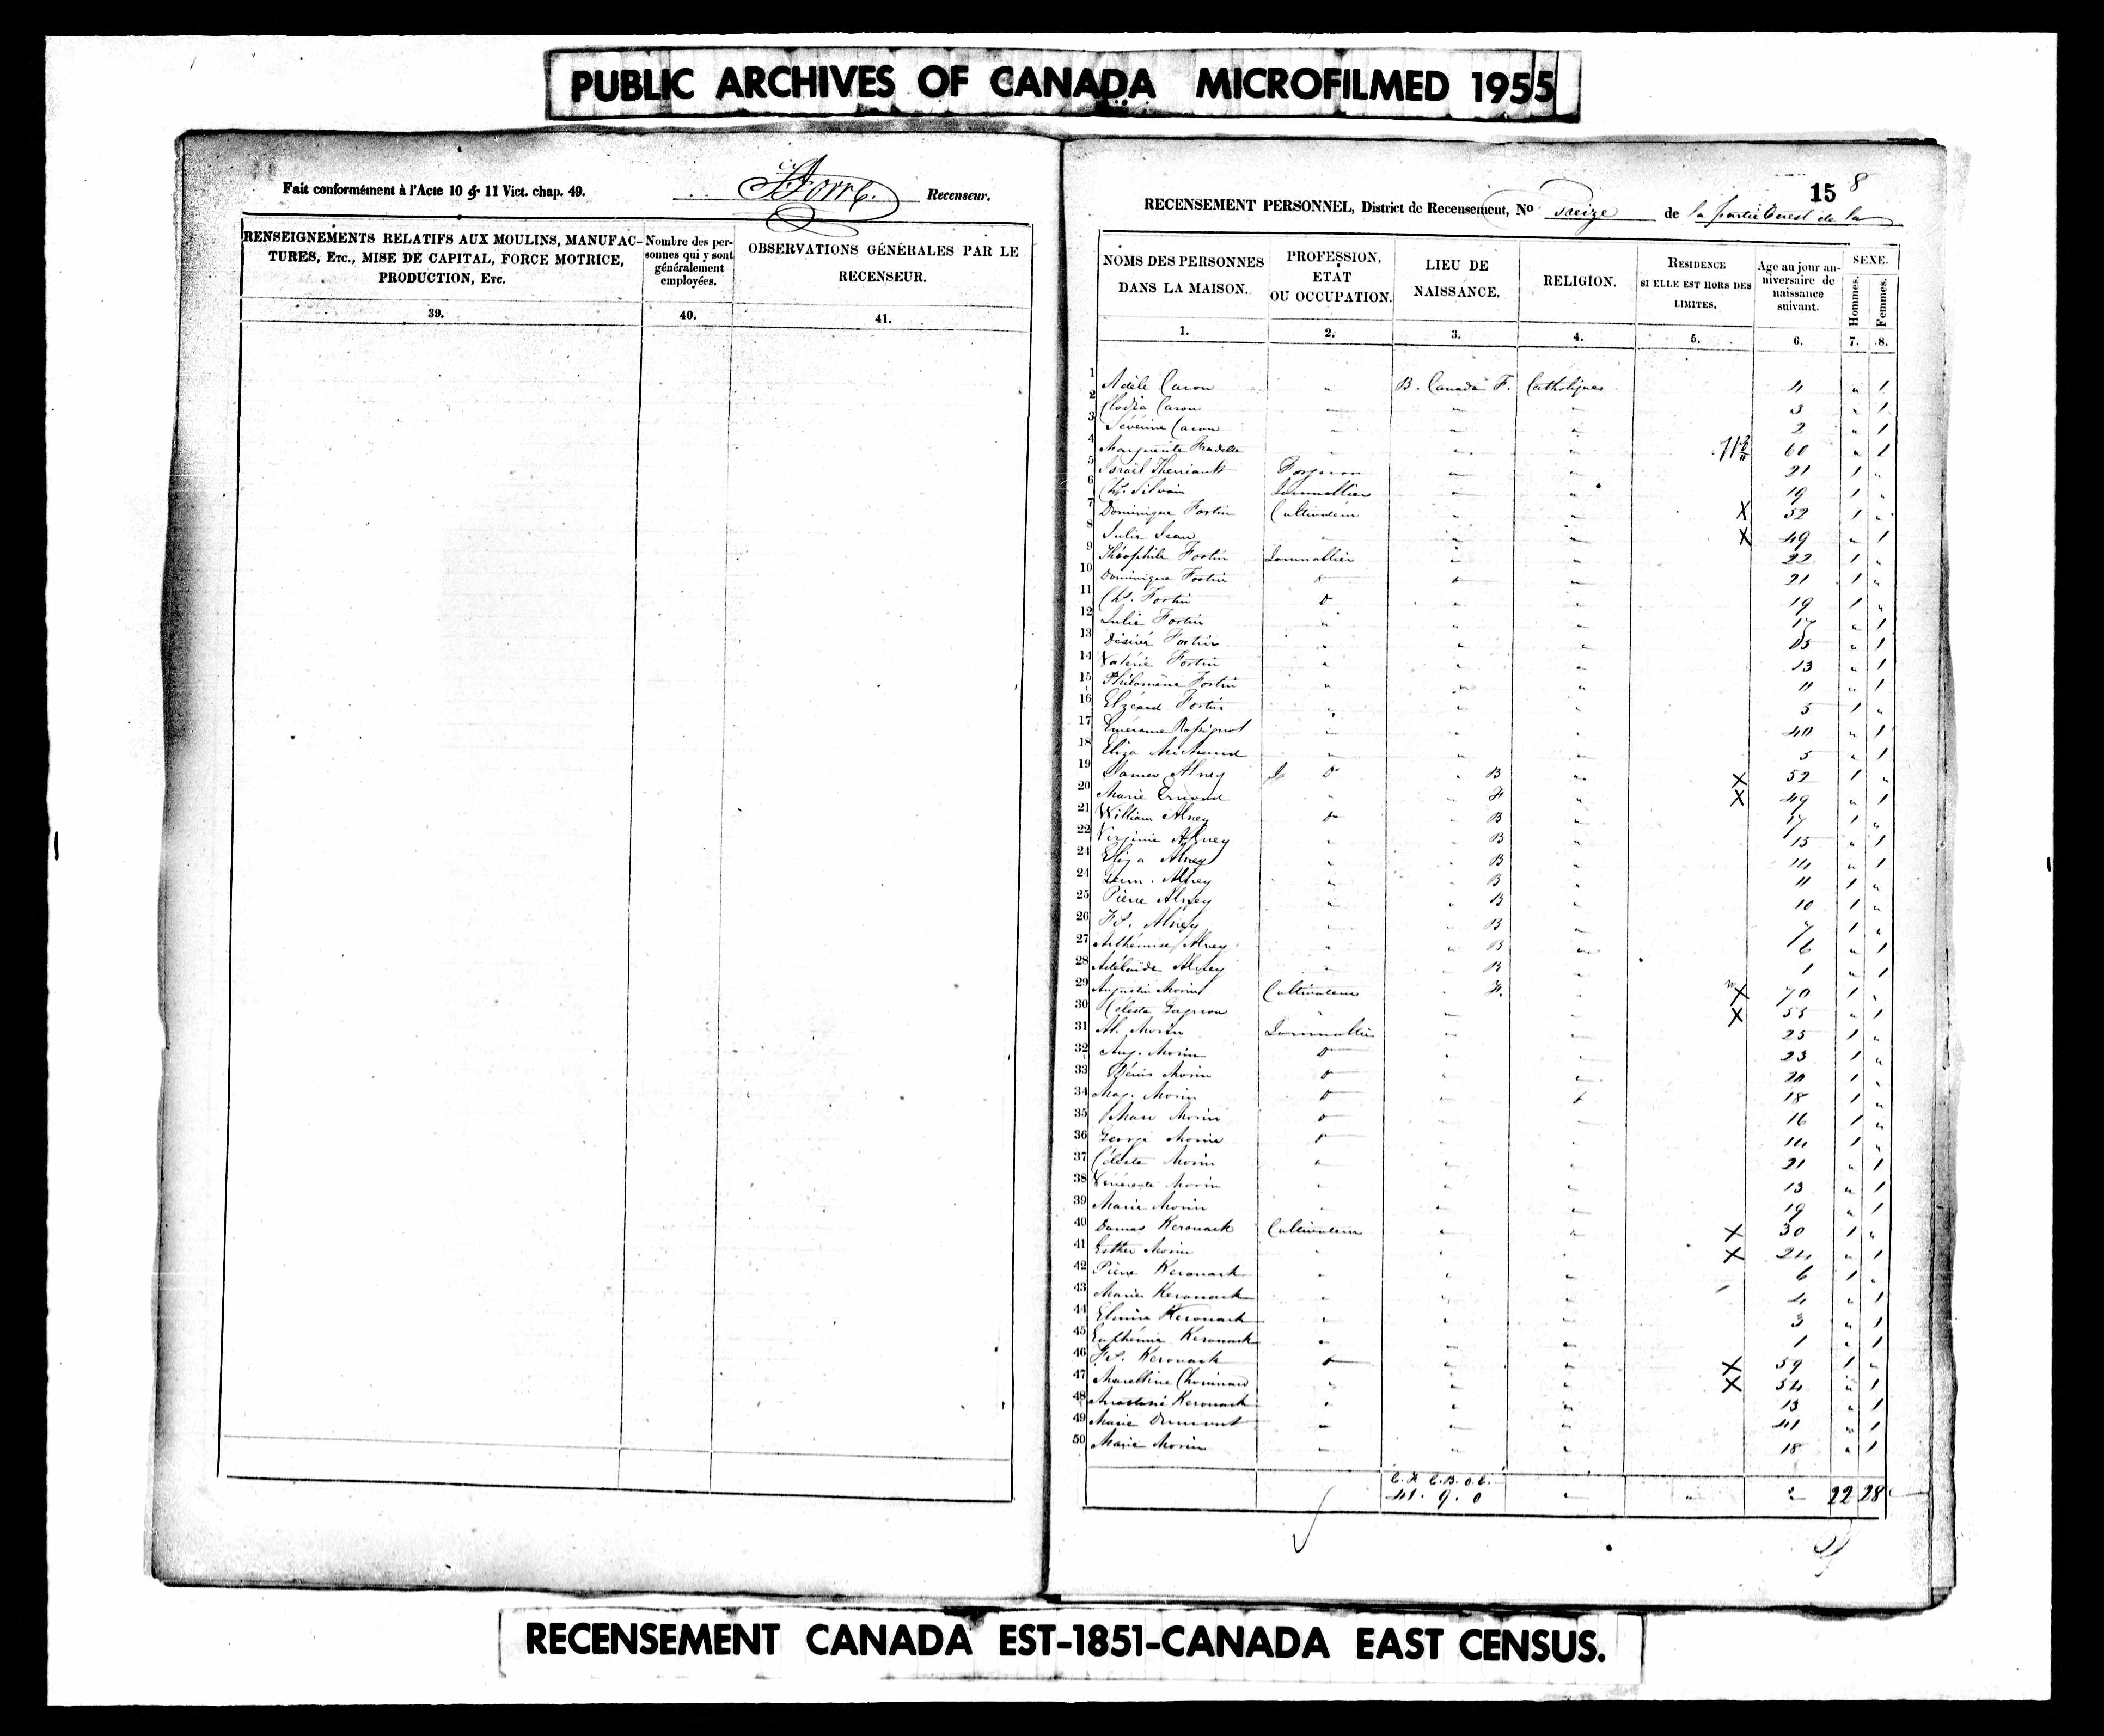 PUBLIC ARCHIVES OF CANADA MICROFILMED 1955
Fait conformément à l'Acte 10 & 11 Vict. chap. 49. Recenseur.
RENSEIGNEMENTS RELATIFS AUX MOULINS, MANUFACTURES, Etc., MISE DE CAPITAL, FORCE MOTRICE, PRODUCTION, Etc.
Nombre des personnes qui y sont généralement employées.
OBSERVATIONS GÉNÉRALES PAR LE RECENSEUR.
39. 40. 41.
15 8
RECENSEMENT PERSONNEL, District de Recensement, No seize de la partie Ouest de la
NOMS DES PERSONNES DANS LA MAISON.
PROFESSION, ETAT OU OCCUPATION.
LIEU DE NAISSANCE.
RELIGION.
RESIDENCE SI ELLE EST HORS DES LIMITES.
Age au jour anniversaire de naissance suivant.
SEXE.
Hommes. Femmes.
1. 2. 3. 4. 5. 6. 7. 8.
1 Adèle Caron " B. Canada F. Catholiques 4 " 1
2 Caron " " " 3 " 1
3 Séverine Caron " " " 2 " 1
4 Marguerite " " " 60 " 1
5 Israël Theriault Forgeron " " 21 1 "
6 Chs. Silvain Journallier " " 19 1 "
7 Dominique Fortin Cultivateur " " X 52 1 "
8 Julie Jean " " " X 49 " 1
9 Théophile Fortin Journallier " " 22 1 "
10 Dominique Fortin " 21 1 "
11 Chs. Fortin " " 19 1 "
12 Julie Fortin " " " 17 " 1
13 Désirée Fortin " " " 15 " 1
14 Valérie Fortin " " " 13 " 1
15 Philomène Fortin " " " 11 " 1
16 Elzéard Fortin " " " 5 1 "
17 " " " 40 " 1
18 Eliza Michaud " " " 5 " 1
19 James Alney " B " X 52 1 "
20 Marie " " F " X 49 " 1
21 William Alney " B " 17 1 "
22 Virginie Alney " " B " 15 " 1
21 Eliza Alney " " B " 14 " 1
24 Alney " " B " 11 1 "
25 Pierre Alney " " B " 10 1 "
26 Alney " " B " 7 1 "
27 Arthémise Alney " " B " 6 " 1
28 Adélaïde Alney " " B " 1 " 1
29 Augustin Morin Cultivateur " F. " X 70 1 "
30 Céleste Gagnon " " " X 55 " 1
31 Morin Journallier " " 25 1 "
32 Aug. Morin " " 23 1 "
33 Dénis Morin " " 20 1 "
34 Mag. Morin " 18 1 "
35 Marc Morin " " 16 1 "
36 George Morin " " 14 1 "
37 Céleste Morin " " " 21 " 1
38 Morin " " " 13 " 1
39 Marie Morin " " " 19 " 1
40 Damas Kerouack Cultivateur " " X 30 1 "
41 Esther Morin " " " X 24 " 1
42 Pierre Kerouack " " " 6 1 "
43 Marie Kerouack " " " 4 " 1
44 Elmire Kerouack " " " 3 " 1
45 Euphémie Kerouack " " " 1 " 1
46 Kerouack " " X 59 1 "
47 Marcelline Chouinard " " " X 54 " 1
48 Kerouack " " " 13 " 1
49 Marie Dumont " " " 41 " 1
50 Marie Morin " " " 18 " 1
C. F. C. B. O. C.
41. 9. 0 " " " 22 28
RECENSEMENT CANADA EST-1851-CANADA EAST CENSUS.